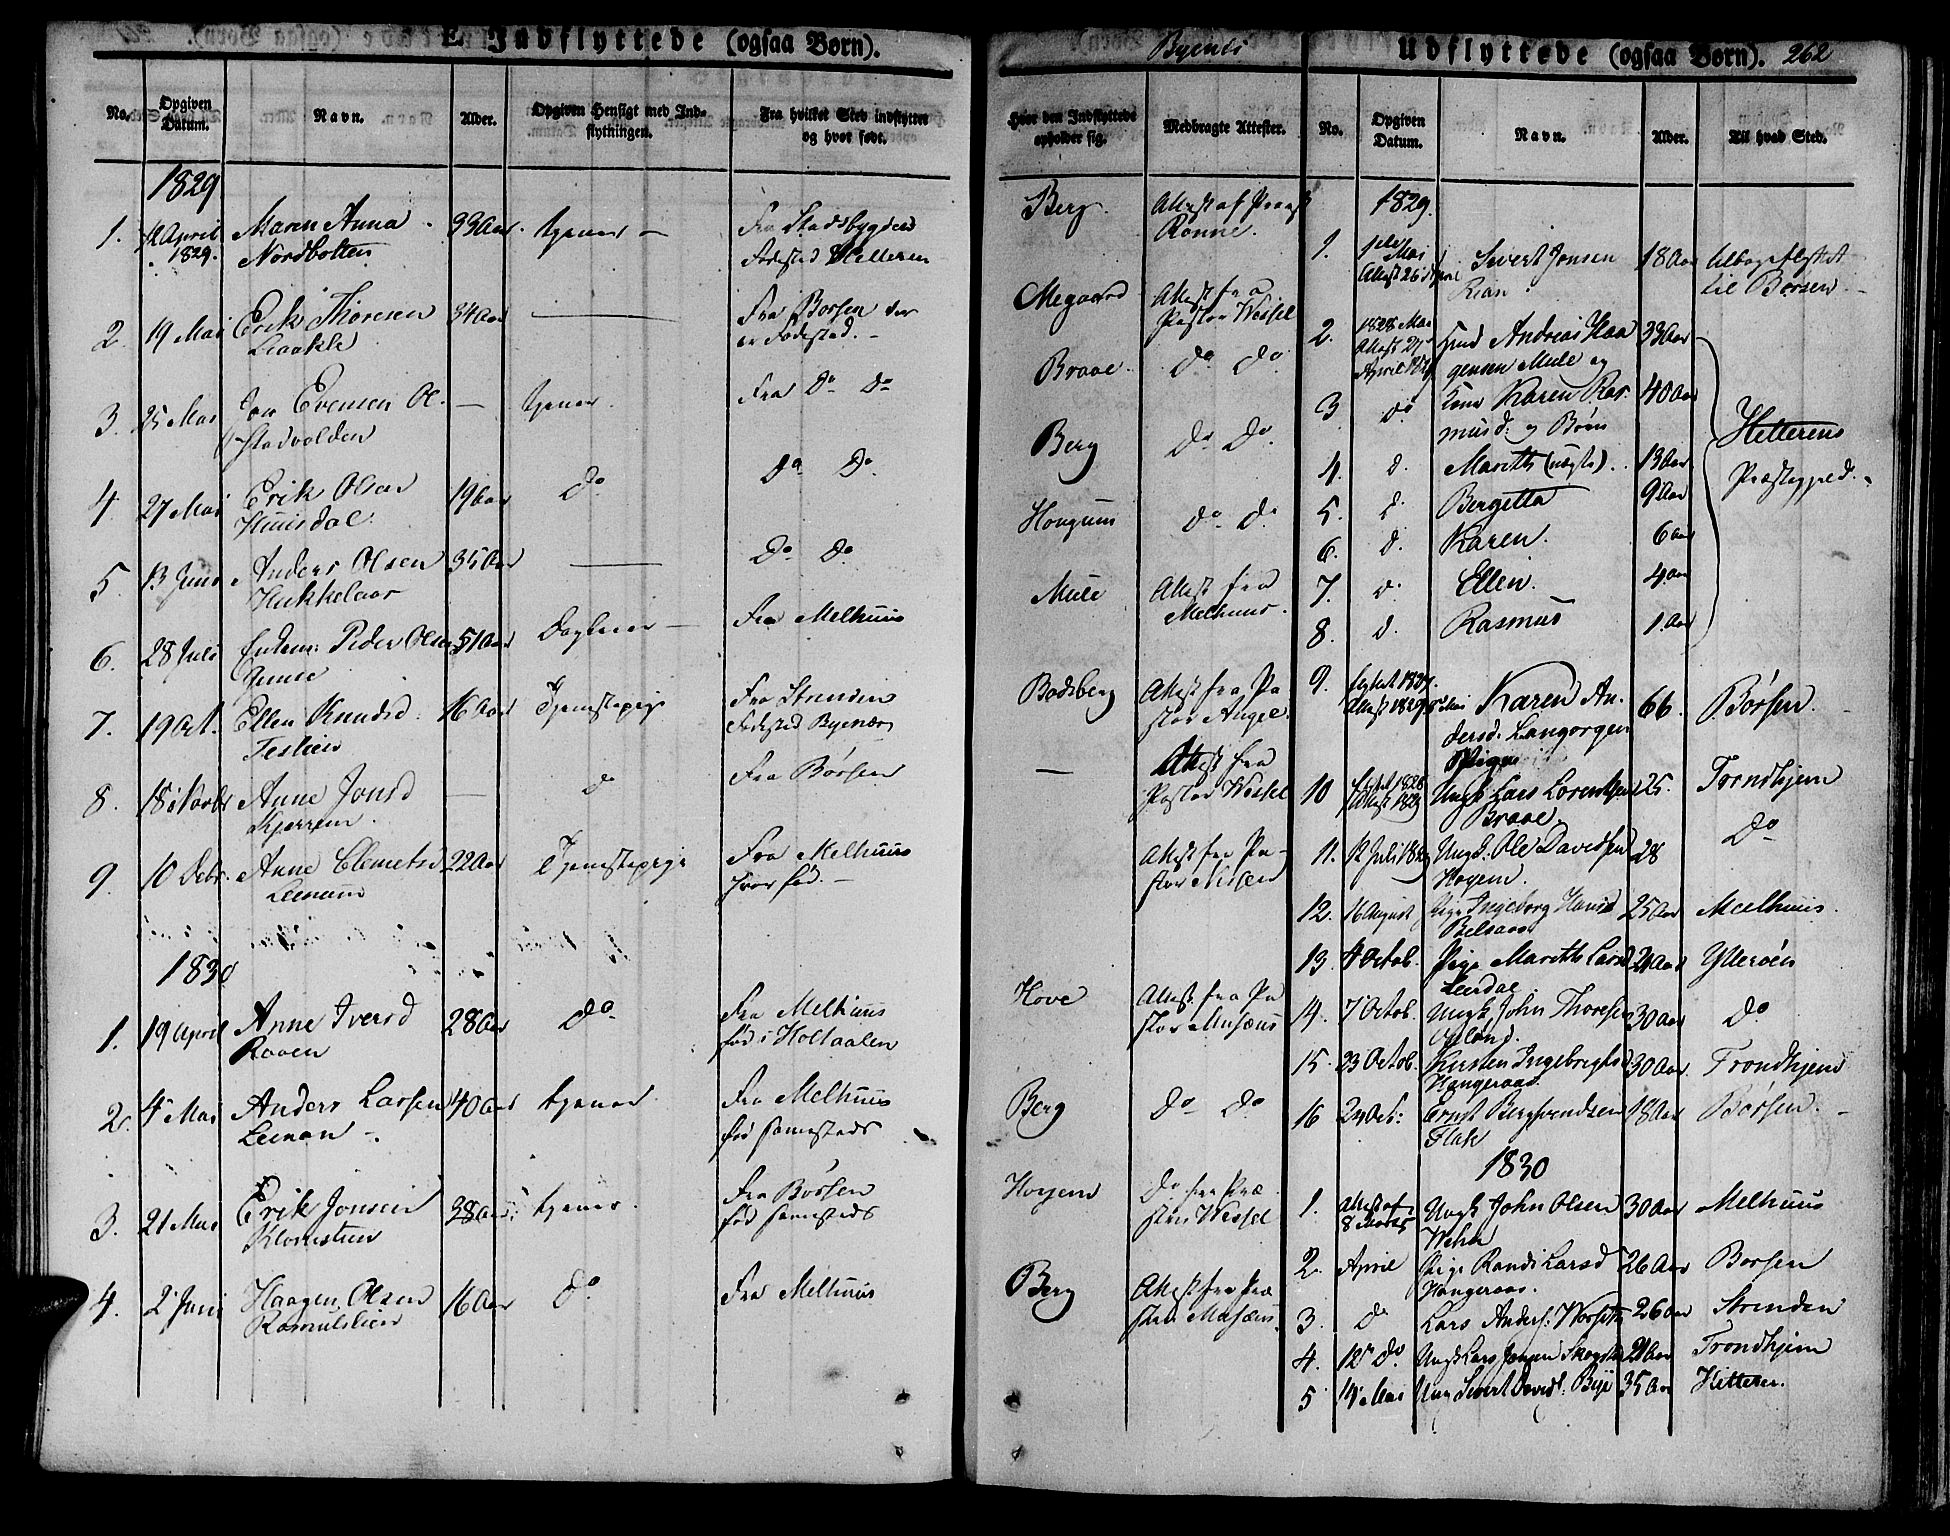 E. Indflyttede (ogsaa Børn).
No.
Opgiven Datum.
Navn.
Alder.
Opgiven Hensigt med Indflytningen.
Fra hvilket Sted indflyttet og hvor født.
1829
1. 12 April 1829. Maren Anna 33 Aar. tjener – Fra Stadsbygden
Nordbotten Fødested Hitteren
2. 19 Mai Erik Thoresen 34 Aar — Fra Børsen der
er Fødested. –
3. 25 Mai Jon Evensen Ol- — tjener. Fra Do Do
stadvolden
4. 27 Mai Erik Olsen 19 Aar Do Do Do
5. 13 Juni Anders Olsen 35 Aar — Do Do
6. 28 Juli Peder Olsen 51 Aar – Fra Melhuus
7. 19 Oct. Ellen Knudsd. 16 Aar Tjenestepige Fra Strinden
Fødested Byenæs
8. 18 Novbr Anne Jonsd — do Fra Børsen
9. 10 Decbr. Anne Clemetsd 22 Aar Tjenestepige Fra Melhuus
Leenum hvor fød. –
1830
1. 19 April Anne Iversd 28 Aar Do Fra Melhuus
Raaen fød i Holtaalen
2. 4 Mai Anders Larsen 40 Aar tjener Fra Melhuus
Leenan –. fød samesteds
3. 21 Mai Erik Jonsen 38 Aar. tjener. Fra Børsen
fød samesteds
4. 2 Juni Haagen Olsen 16 Aar Do Fra Melhuus
Ramulslien
Byenes
Hvor den Indflyttede opholder sig.
Medbragte Attester.
Berg. Attest af Præst
Rønne.
Megaard Attest fra
Pastor Wessel
Braae. Do Do
Berg Do Do
Hougum Do Do
Mule Attest fra
Melhuus.
Bodsberg Attest fra Pa-
stor Angel.
— Attest fra
Pastor Wessel
Attest fra Pa-
stor Nissen
Hove Attest fra Pa
stor Musæus
Berg Do Do
Høyem Do fra Præ
sten Wessel
Berg Attest fra Præ
sten Musæus.
Udflyttede (ogsaa Børn). 262
No.
Opgiven Datum.
Navn.
Alder.
Til hvad Sted.
1829.
1. 1ste Mai Sivert Jonsen 18 Aar tilbageflyttet
Attest 26 April Rian til Børsen. –
2. 1828 Mai Andreas Haa 33 Aar
Attest 27 April 1829 gensen Mule og
3 do Kone Karen Ras- 40 Aar
musd. og Børn
4. d. Mareth (uægte). 13 Aar
5. d. Bergetta 9 Aar
6. d. Karen. 6 Aar
7. d. Ellen. 4 Aar
8. d. Rasmus 1. Aar
Hitterens
Præstegjeld.
9. Karen An- 66. Børsen.
dersd. Langørgen
10 Ungk Lars Lorentsen 25. Trondhjem
Braae.
11. 12 Juli 1829 Ungk. Ole Davidsen 28 Do
Høyem.
12. 16 August Pige Ingeborg Hansd 25 Aar Melhuus.
13. 4 Octob. Pige Mareth Larsd 24 Aar Ytterøen
Leerdal
14. 7 Octob. Ungk John Thoresen 30 Aar Do
15. 23 Octob. Kirsten Ingebrigtsd. 30 Aar. Trondhjem
Hangeraas.
16 24 Oct: Ernst Bergsvendsen 18 Aar Børsen. –
Flak
1830
1. Attest af Ungk John Olsen 30 Aar Melhuus
8 Marts
2. April Pige Randi Larsd 26 Aar Børsen
Hangeraas.
3. Do Lars Anders. 26 Aar Strinden
4. 12 do. Ungk Lars 21 Aar Trondhjem
5 14 Mai Ung Sivert Davids. Bye 35 Aar Hitteren.